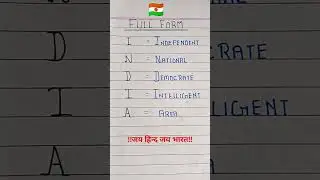 FULL FORM
I = INDEPENDENT
N = NATIONAL
D = DEMOCRATE
I = INTELLIGENT
A = AREA
!!जय हिन्द जय भारत!!